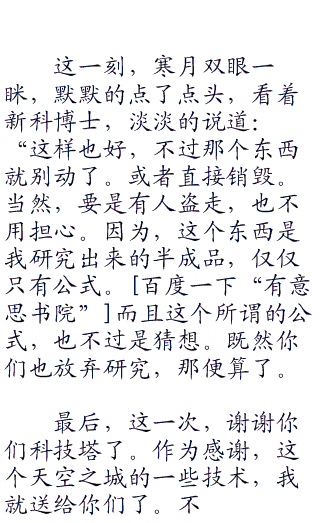 这一刻，寒月双眼一
眯，默默的点了点头，看着
新科博士，淡淡的说道：
“这样也好，不过那个东西
就别动了。或者直接销毁。
当然，要是有人盗走，也不
用担心。因为，这个东西是
我研究出来的半成品，仅仅
只有公式。[百度一下“有意
思书院”]而且这个所谓的公
式，也不过是猜想。既然你
们也放弃研究，那便算了。
最后，这一次，谢谢你
们科技塔了。作为感谢，这
个天空之城的一些技术，我
就送给你们了。不